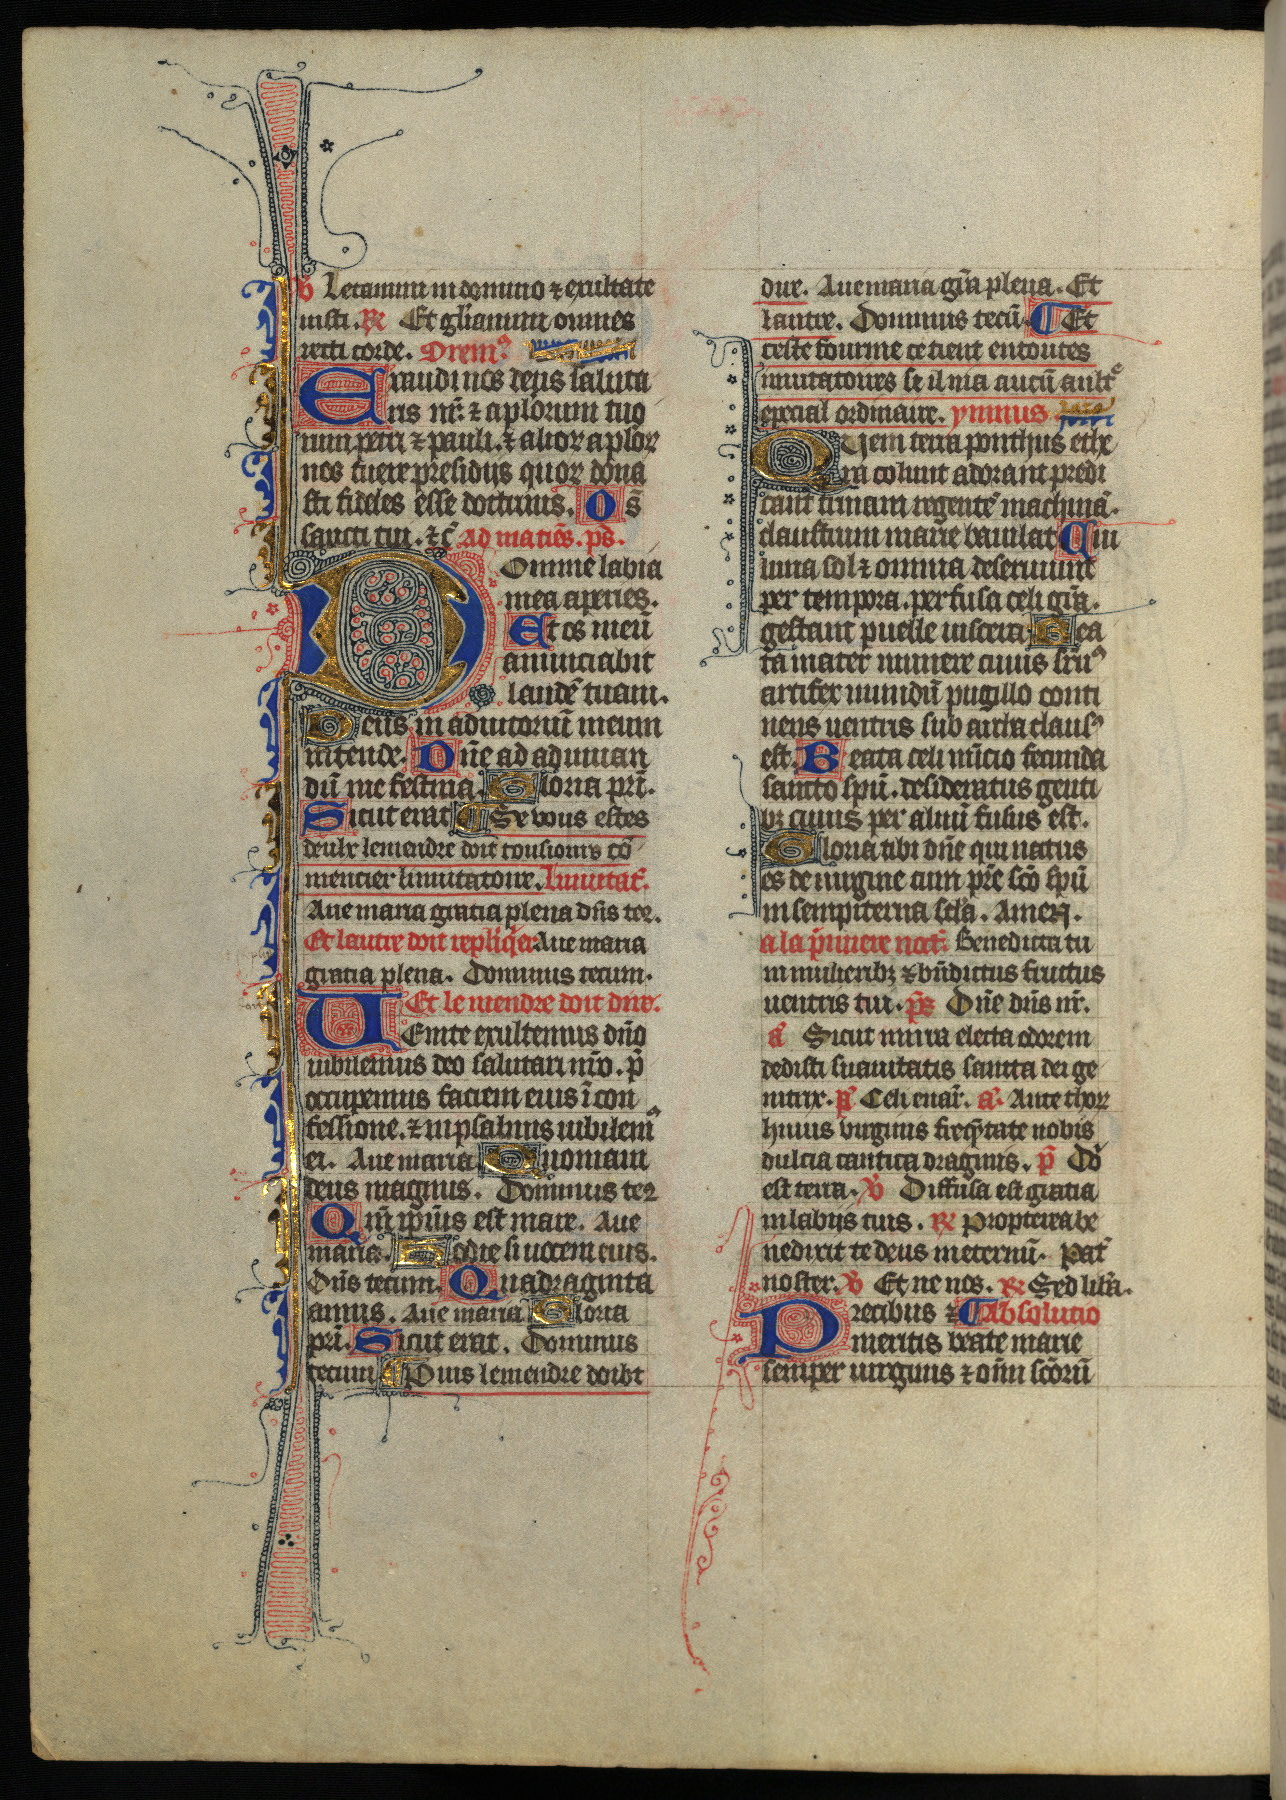 v̄ Letamini in domino ⁊ exultate
iusti. R̄ Et gl̄iamini omnes
recti corde. Orem⁹
Exaudi nos deus saluta
ris nr̄. ⁊ aplōrum tuo
rum petri ⁊ pauli. ⁊ alioꝝ aploꝝ
nos tuere presidiis quoꝝ dona
sti fideles esse doctrinis. Os̄
sancti tui. ⁊c̄ Ad matīs. ps̄.
Domine labia
mea aperies.
Et os meū
annunciabit
laudē tuam.
Deus in adiutoriū meum
intende. Dn̄e ad adiuuan
dū me festina. Gloria pr̄i.
Sicut erat Se vous estes
deulx lemendre doit tousiours cō
mencier linuitatoire. Inuitat̄.
Aue maria gratia plena dn̄s tec.
Et lautre doit repliq̄er Aue maria
gratia plena. Dominus tecum.
Et le mendre doit dire.
Uenite exultemus dn̄o
iubilemus deo salutari nr̄o. p̄
occupemus faciem eius ī con
fessione. ⁊ in psalmis iubilem⁹
ei. Aue maria Quoniam
deus magnus. Dominus tec
Qm̄ ip̄ius est mare. Aue
maria. Hodie si uocem eius.
Dn̄s tecum. Quadraginta
annis. Aue maria Gloria
pr̄i. Sicut erat. Dominus
tecum Puis lemendre doibt
dire. Aue maria gr̄a plena. Et
lautre. Dominus tecū. Et
ceste fourme ce tient en toutes
inuitatoires se il nia aucū ault̄e
especial ordinaire. ymnus
Quem terra ponthus ethe
ra colunt adorant predi
cant trinam regentē machinā.
claustrum marie baiulat Cui
luna sol ⁊ omnia deseruiunt
per tempora. perfusa celi gr̄a.
gestant puelle uiscera Bea
ta mater munere cuius sup̄n⁹
artifex mundū pugillo conti
nens uentris sub archa claus⁹
est. Beata celi nūcio fecunda
sancto spū. desideratus genti
bꝫ cuius per aluū fusus est.
Gloria tibi dn̄e qui natus
es de uirgine cum pr̄e sc̄o spū
in sempiterna sc̄la. Amen.
a la p̄miere noct̄. Benedicta tu
in mulieribꝫ ⁊ bn̄dictus fructus
uentris tui. ps̄ Dn̄e dn̄s nr̄.
a Sicut mirra electa odorem
dedisti suauitatis sancta dei ge
nitrix. p̄ Celi enar̄. a. Ante thoꝝ
huius virginis freq̄ntate nobis
dulcia cantica dragmis. p̄ Dn̄i
est terra. v̄ Diffusa est gratia
in labiis tuis. R̄ Propterea be
nedixit te deus in eternū. Pat̄
noster. v̄ Et ne nos. R̄ Sed lib̄a.
Precibus ⁊ Absolutio
meritis beate marie
semper uirginis ⁊ oīm sc̄orū